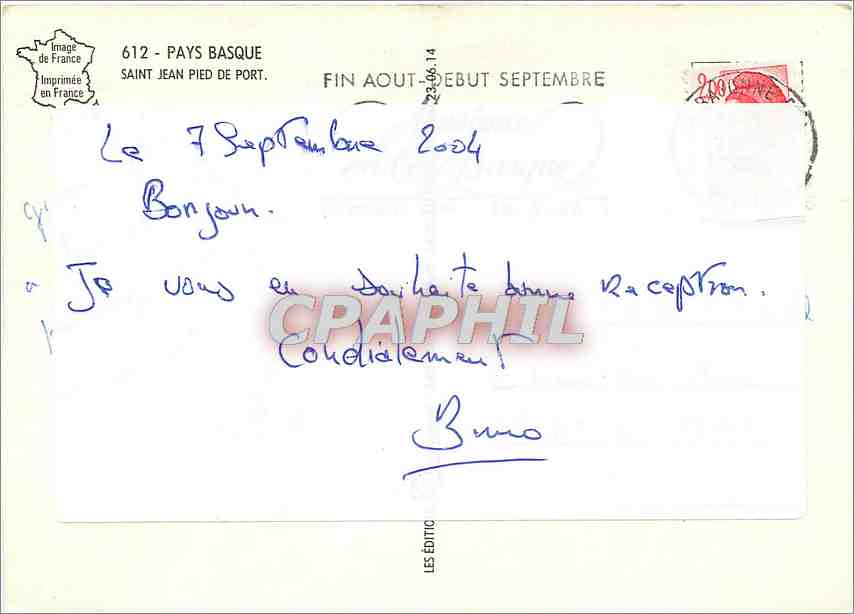 Image
de France
Imprimée
en France
612 - PAYS BASQUE
SAINT JEAN PIED DE PORT.
23.06.14
FIN AOUT-DEBUT SEPTEMBRE
2,00
Le 7 Septembre 2004
Bonjour.
Je vous en souhaite bonne reception.
CPAPHIL
Cordialement
Bruno
LES ÉDITIO